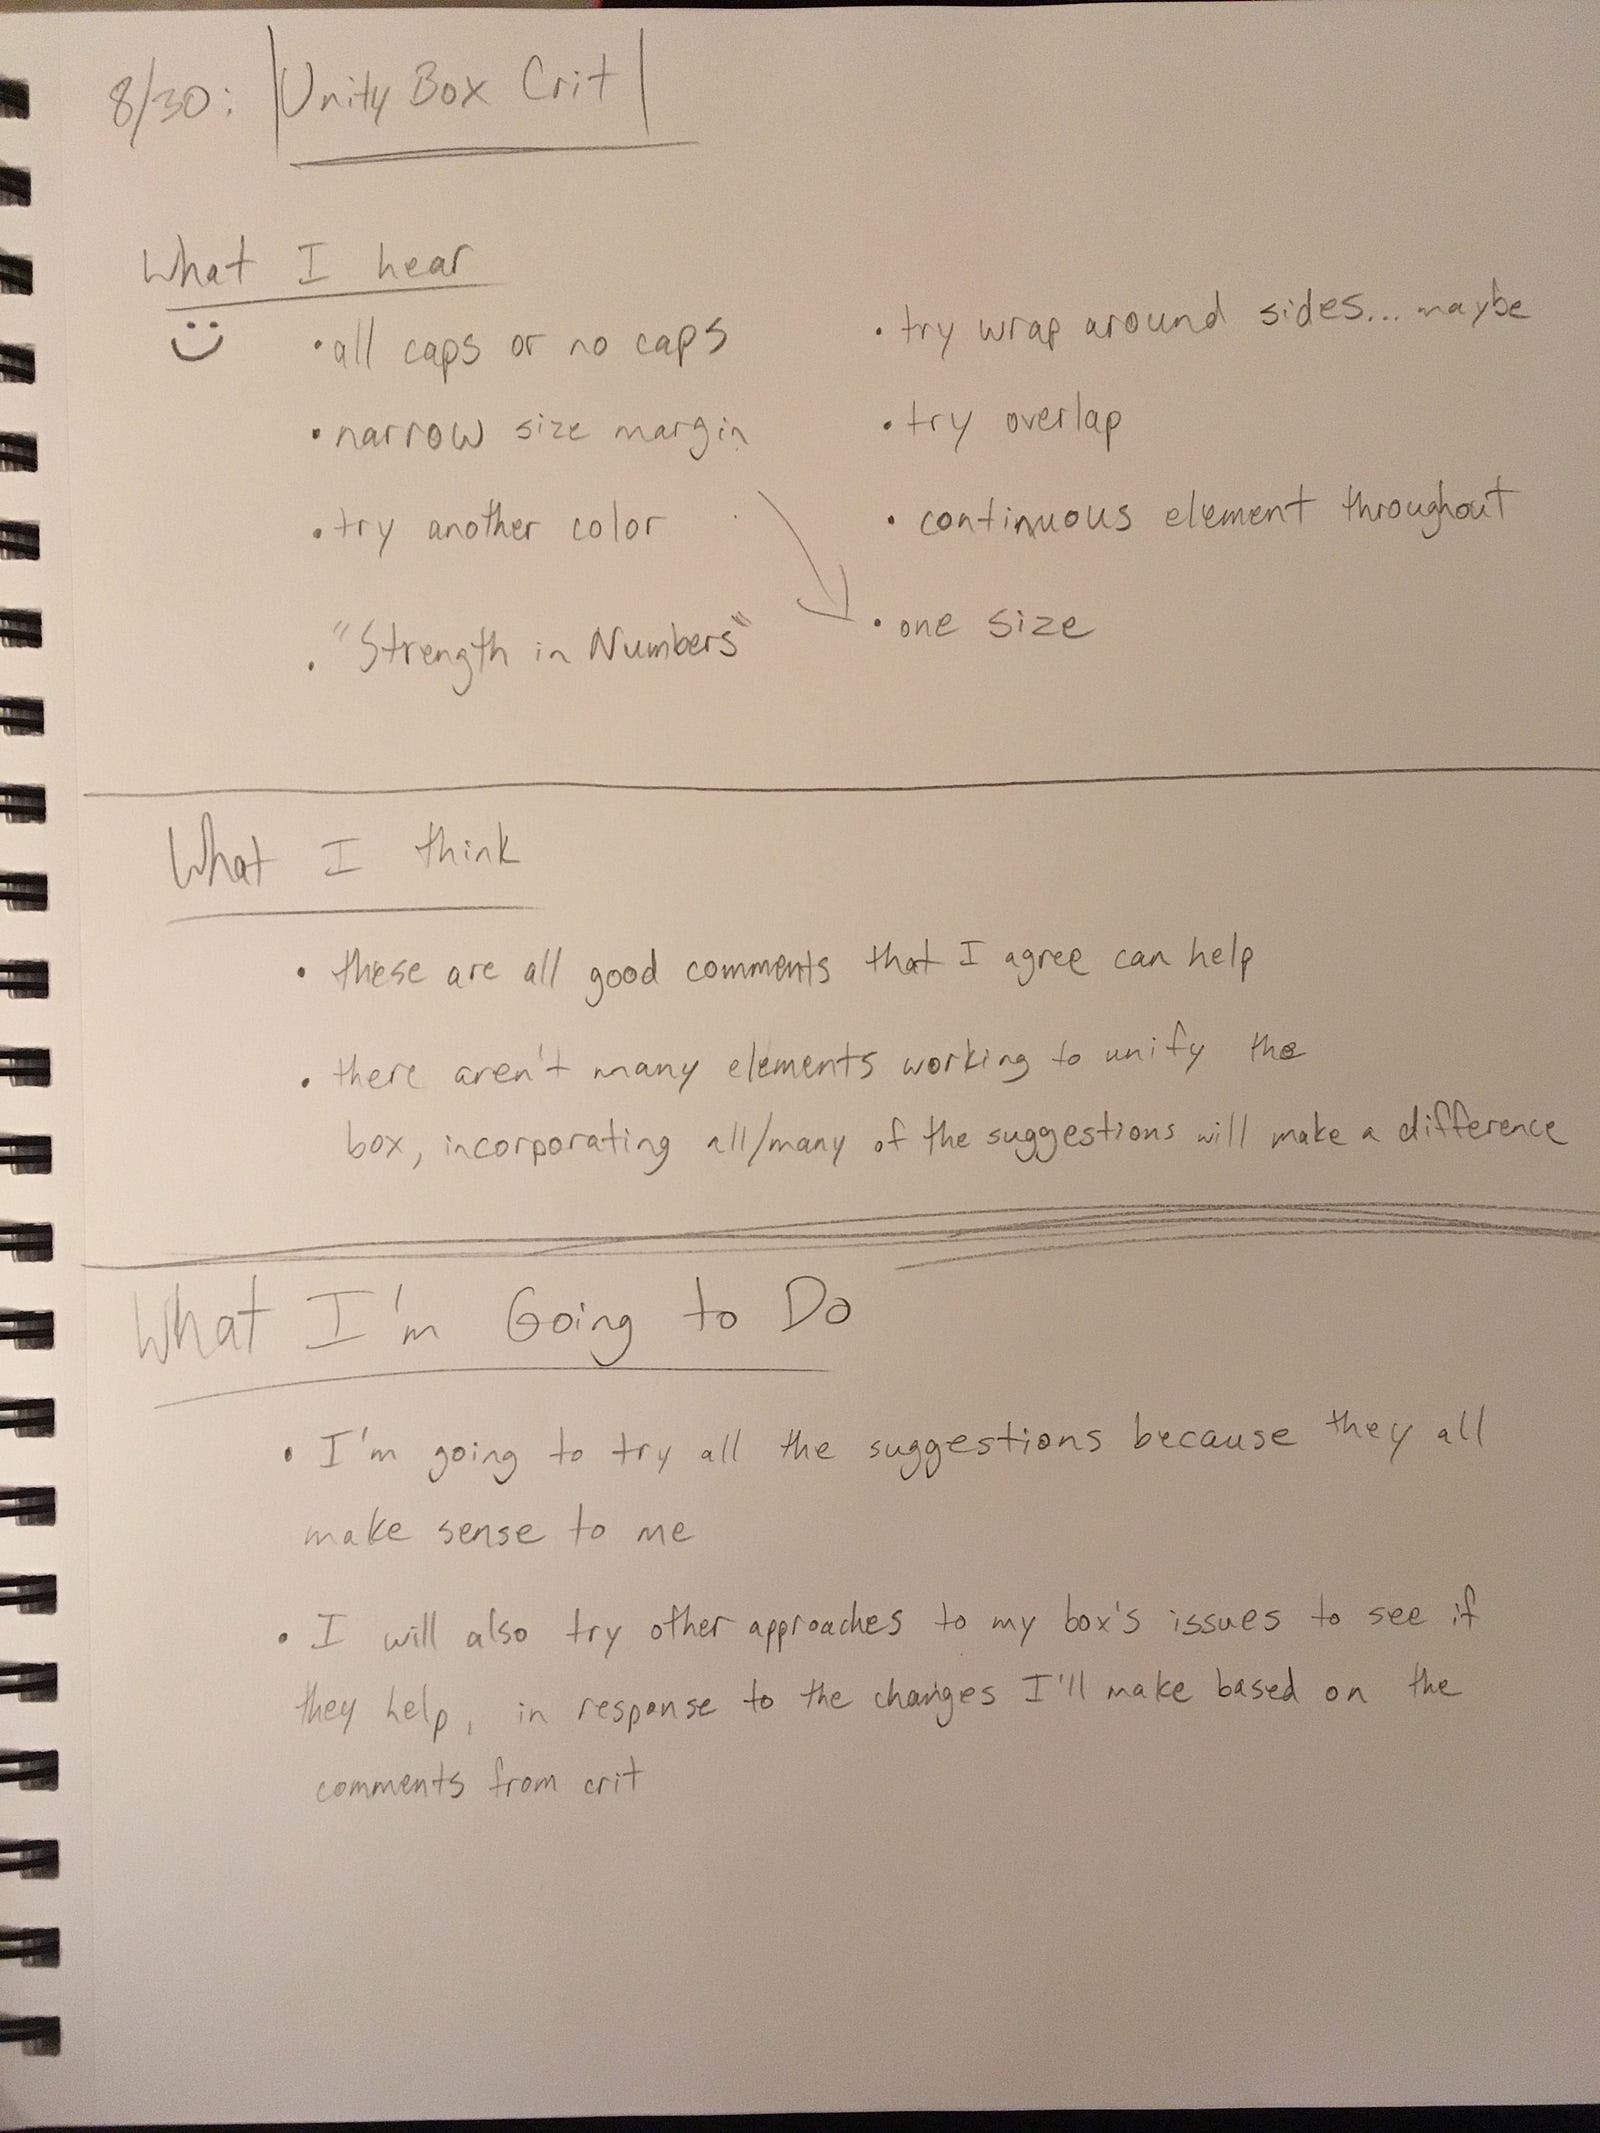 8/30: |Unity Box Crit|
What I hear
• all caps or no caps
• narrow size margin
• try another color
• "Strength in Numbers"
• try wrap around sides... maybe
• try overlap
• continuous element throughout
• one size
What I think
• these are all good comments that I agree can help
• there aren't many elements working to unify the
box, incorporating all/many of the suggestions will make a difference
What I'm Going to Do
• I'm going to try all the suggestions because they all
make sense to me
• I will also try other approaches to my box's issues to see if
they help, in response to the changes I'll make based on the
comments from crit